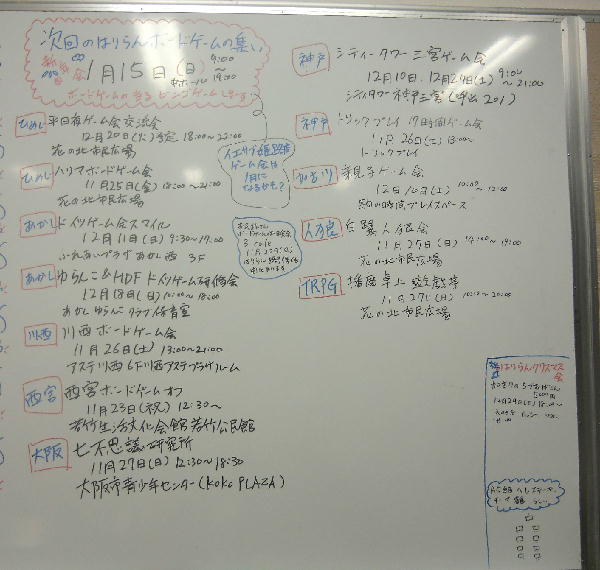 次回のはりらんボードゲームの集い
1月15日(日) 9:00~19:00
中ホール
ボードゲームの当るビンゴゲームします
ひめじ 平日夜ゲーム会交流会
12月20日(火)予定 18:00~22:00
花の北市民広場
ひめじ ハリマボードゲーム会
11月25日(金) 18:00~21:00
花の北市民広場
あかし ドイツゲーム会スマイル
12月11日(日) 9:30~17:00
ふれあいプラザあかし西 3F
あかし ゆらんこ&HDFドイツゲーム研修会
12月18日(日) 10:00~18:00
あかしゆらんこクラブ 保育室
川西 川西ボードゲーム会
11月26日(土) 13:00~21:00
アステ川西6F川西アステプラザルーム
西宮 西宮ボードゲームオフ
11月23日(祝) 12:30~
若竹生活文化会館若竹公民館
大阪 七不思議研究所
11月27日(日) 12:30~18:30
大阪市青少年センター(KOKO PLAZA)
神戸 シティータワー三宮ゲーム会
12月10日、12月24日(土) 9:00~21:00
シティタワー神戸三宮(呼出201)
神戸 トリックプレイ 17時間ゲーム会
11月26日(土) 13:00~
トリックプレイ
加古川 親子ゲーム会
12月10日(土) 10:00~12:00
プレイスペース
人狼 人狼会
花の北市民広場
TRPG 播磨卓上遊戯
11月27日(日) 10:00~20:00
花の北市民広場
イエサブ姫路店
ゲーム会は
1月に
なるかも?
はりらんクリスマス会
12月24日(土) 18:00~